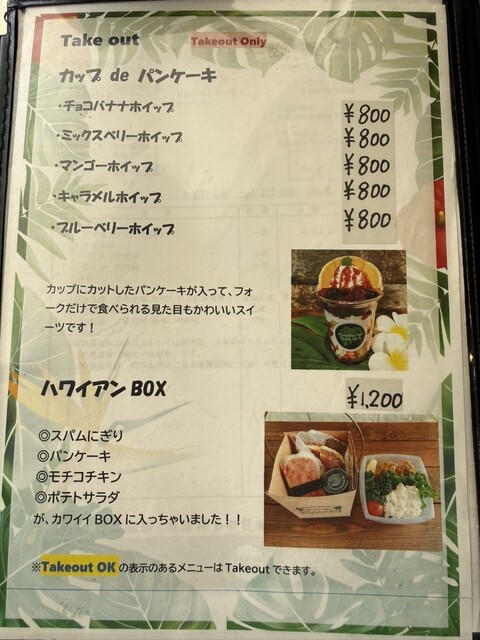 Take out Takeout Only
カップ de パンケーキ
・チョコバナナホイップ ¥800
・ミックスベリーホイップ ¥800
・マンゴーホイップ ¥800
・キャラメルホイップ ¥800
・ブルーベリーホイップ ¥800
カップにカットしたパンケーキが入って、フォ
ークだけで食べられる見た目もかわいいスイ
ーツです！
ハワイアン BOX ¥1,200
◎スパムにぎり
◎パンケーキ
◎モチコチキン
◎ポテトサラダ
が、カワイイ BOX に入っちゃいました！！
※Takeout OK の表示のあるメニューは Takeout できます。